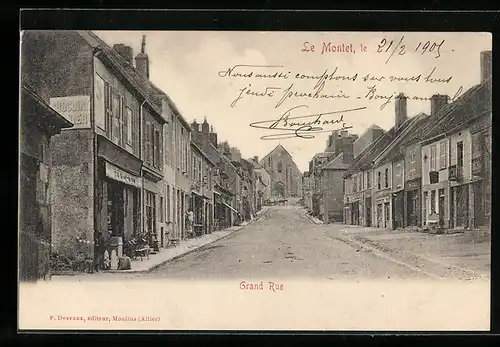 Le Montet, le 21/2 1901
Nous aussi comptons sur vous tous
jeudi prochain - Bonjour
Bouchard
Grand Rue
F. Desvaux, éditeur, Moulins (Allier)